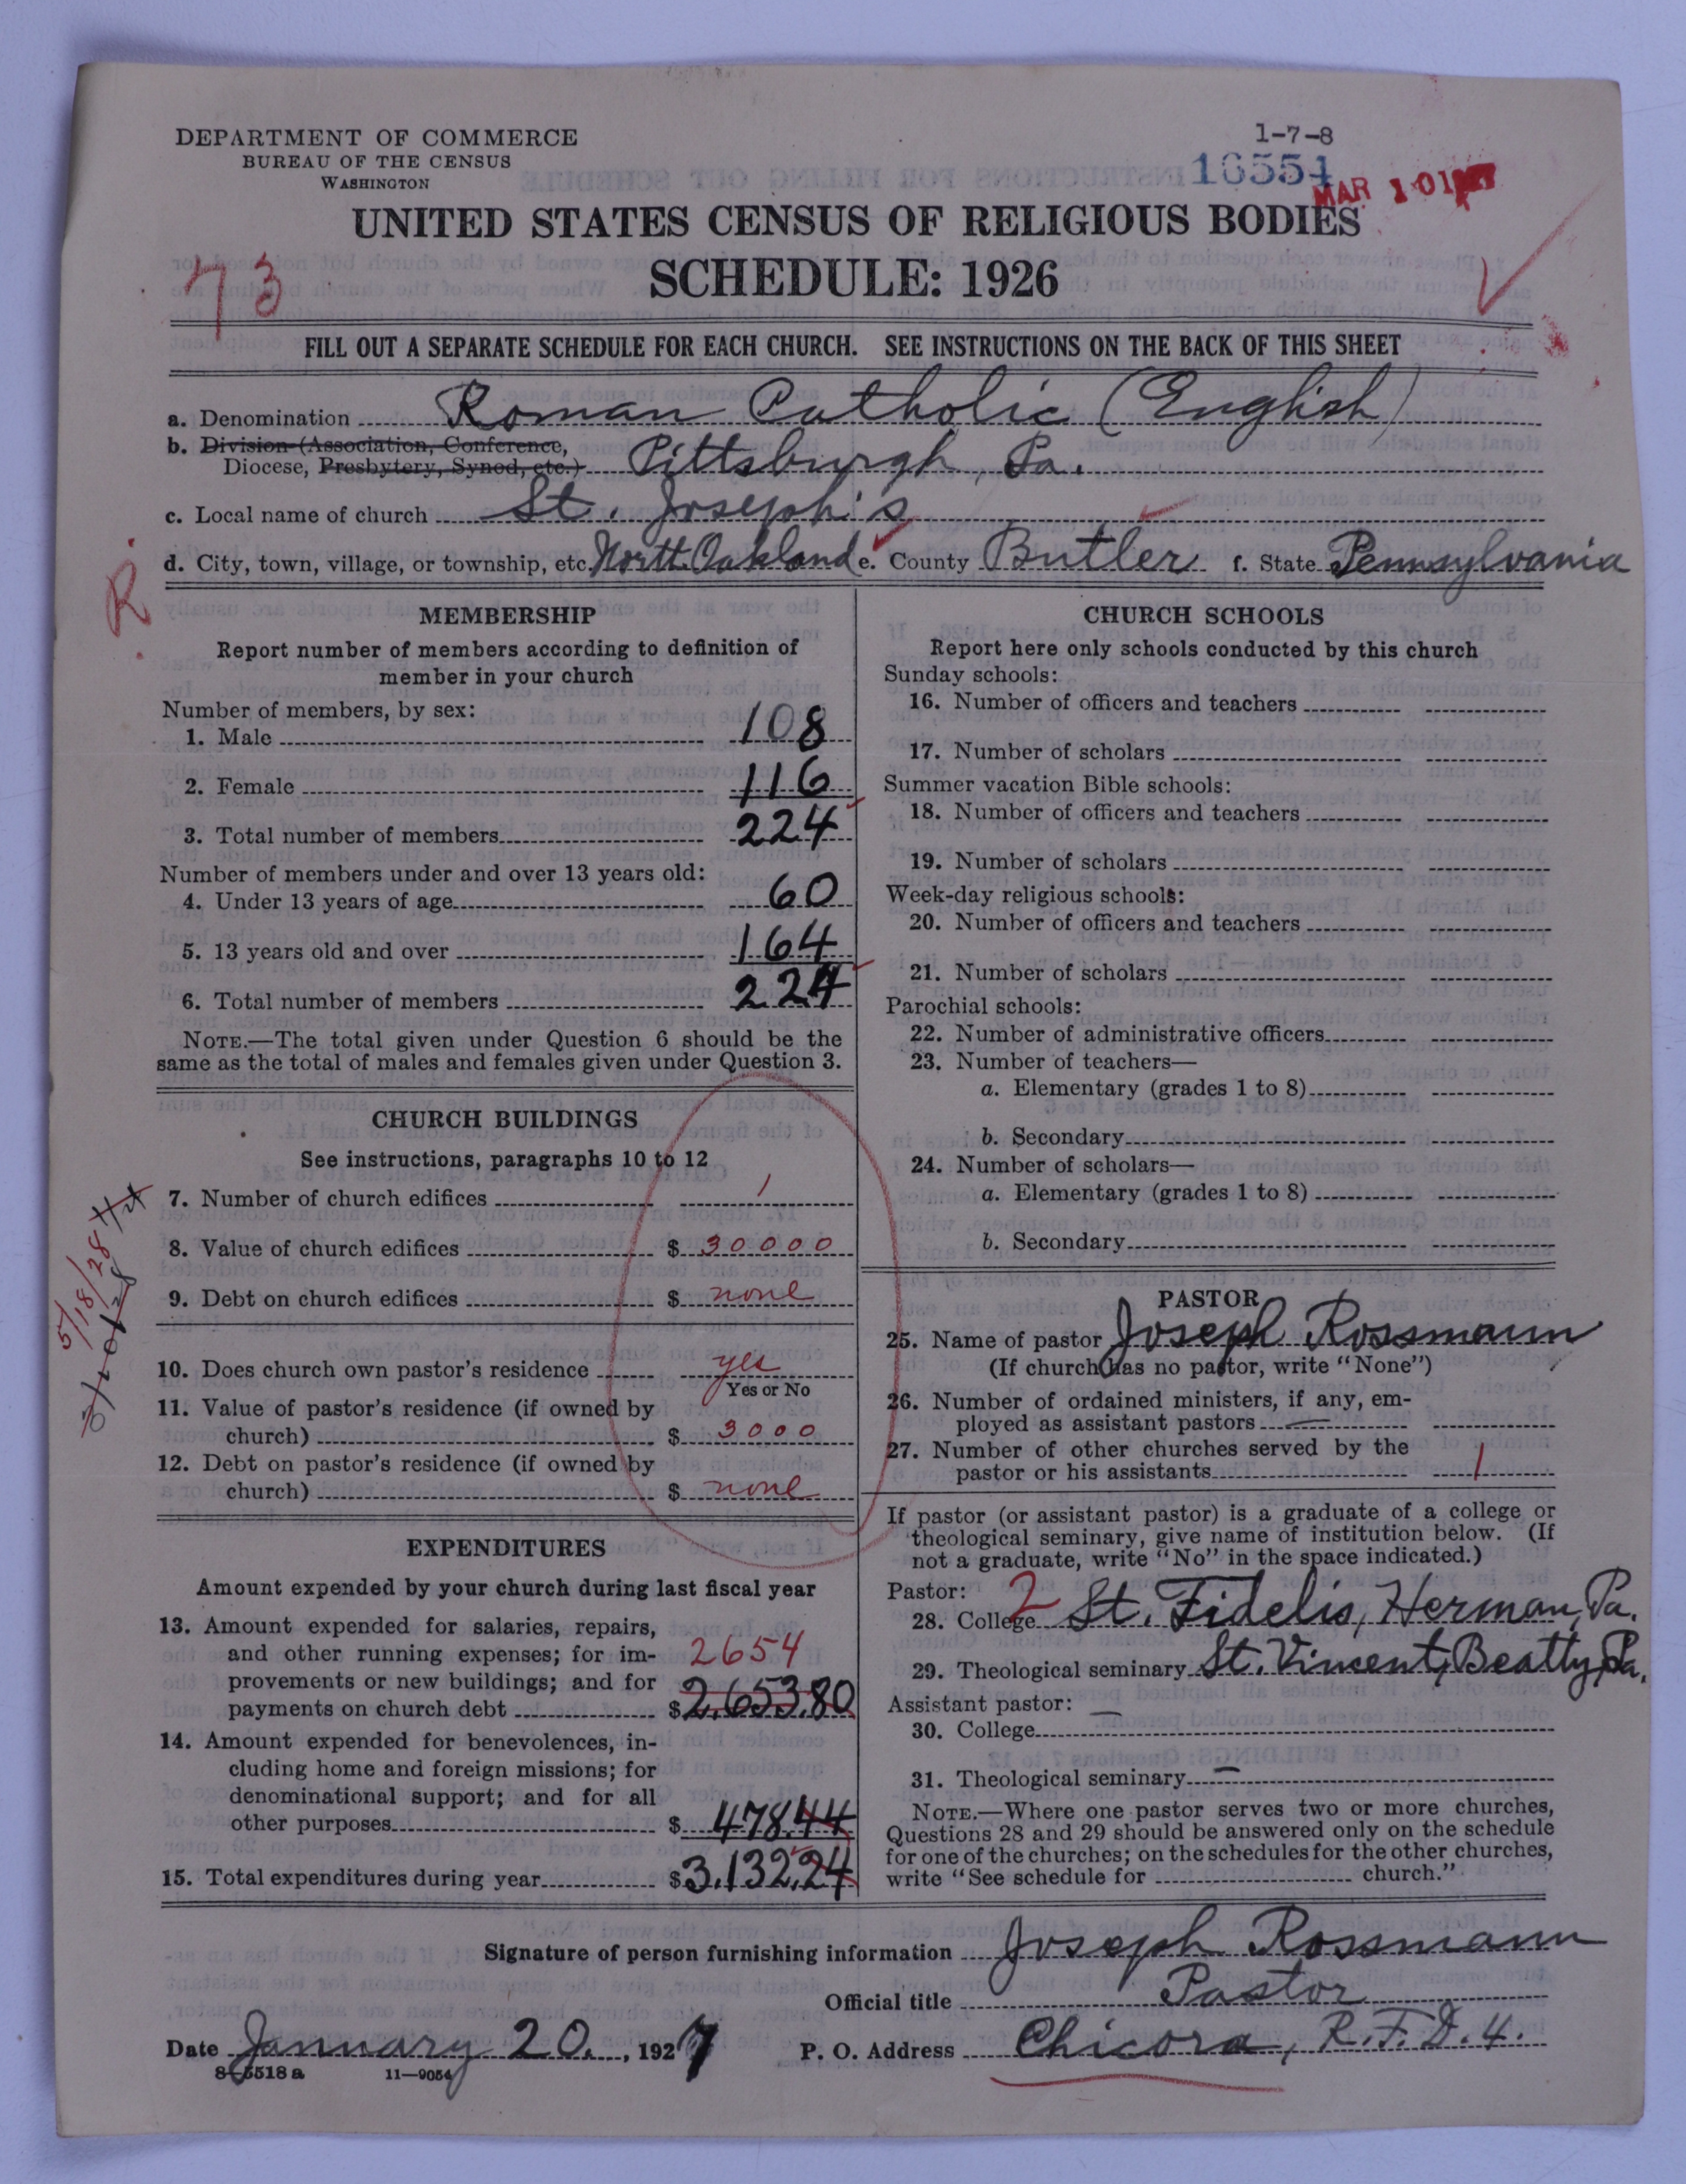 DEPARTMENT OF COMMERCE
BUREAU OF THE CENSUS
WASHINGTON
1-7-8
16554
MAR 10 1927
UNITED STATES CENSUS OF RELIGIOUS BODIES
SCHEDULE: 1926
73
FILL OUT A SEPARATE SCHEDULE FOR EACH CHURCH. SEE INSTRUCTIONS ON THE BACK OF THIS SHEET
a. Denomination Roman Catholic (English)
b. Division (Association, Conference,
Diocese, Presbytery, Synod, etc.) Pittsburgh, Pa.
c. Local name of church St. Joseph's
d. City, town, village, or township, etc. North Oakland e. County Butler f. State Pennsylvania
R
MEMBERSHIP
Report number of members according to definition of
member in your church
Number of members, by sex:
1. Male 108
2. Female 116
3. Total number of members 224
Number of members under and over 13 years old:
4. Under 13 years of age 60
5. 13 years old and over 164
6. Total number of members 224
NOTE.—The total given under Question 6 should be the
same as the total of males and females given under Question 3.
CHURCH BUILDINGS
See instructions, paragraphs 10 to 12
7. Number of church edifices 1
8. Value of church edifices $ 30000
9. Debt on church edifices $ none
10. Does church own pastor's residence yes
Yes or No
11. Value of pastor's residence (if owned by
church) $ 3000
12. Debt on pastor's residence (if owned by
church) $ none
5/18/28
EXPENDITURES
Amount expended by your church during last fiscal year
13. Amount expended for salaries, repairs,
and other running expenses; for im-
provements or new buildings; and for
payments on church debt $ 2,653.80
2654
14. Amount expended for benevolences, in-
cluding home and foreign missions; for
denominational support; and for all
other purposes $ 478.44
15. Total expenditures during year $ 3,132.24
CHURCH SCHOOLS
Report here only schools conducted by this church
Sunday schools:
16. Number of officers and teachers
17. Number of scholars
Summer vacation Bible schools:
18. Number of officers and teachers
19. Number of scholars
Week-day religious schools:
20. Number of officers and teachers
21. Number of scholars
Parochial schools:
22. Number of administrative officers
23. Number of teachers—
a. Elementary (grades 1 to 8)
b. Secondary
24. Number of scholars—
a. Elementary (grades 1 to 8)
b. Secondary
PASTOR
25. Name of pastor Joseph Rossmann
(If church has no pastor, write "None")
26. Number of ordained ministers, if any, em-
ployed as assistant pastors —
27. Number of other churches served by the
pastor or his assistants 1
If pastor (or assistant pastor) is a graduate of a college or
theological seminary, give name of institution below. (If
not a graduate, write "No" in the space indicated.)
Pastor:
28. College 2 St. Fidelis, Herman, Pa.
29. Theological seminary St. Vincent, Beatty, Pa.
Assistant pastor:
30. College —
31. Theological seminary —
NOTE.—Where one pastor serves two or more churches,
Questions 28 and 29 should be answered only on the schedule
for one of the churches; on the schedules for the other churches,
write "See schedule for church."
Signature of person furnishing information Joseph Rossmann
Official title Pastor
Date January 20, 1927 P. O. Address Chicora, R.F.D.4.
8-5518 a 11-9054